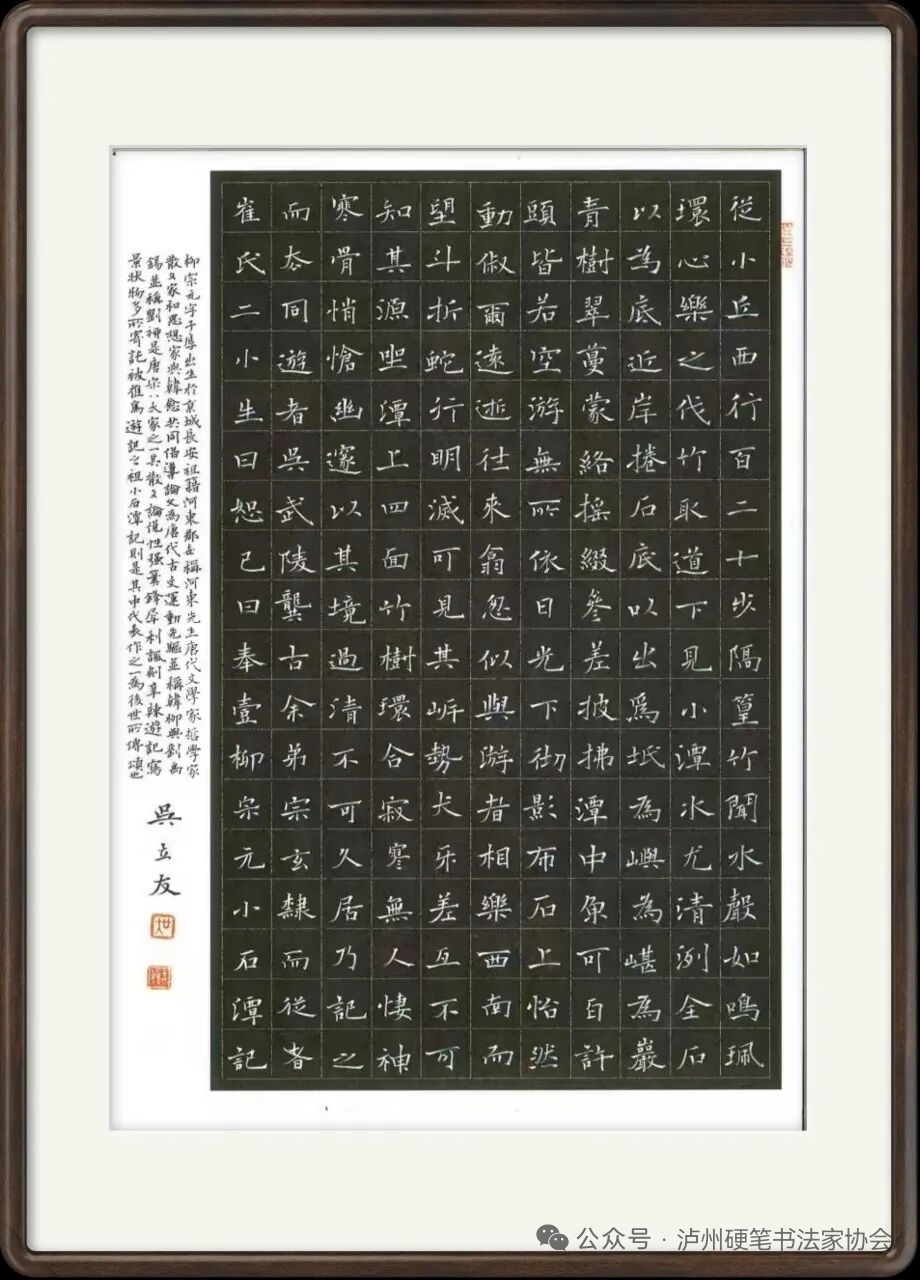 從小丘西行百二十步隔篁竹聞水聲如鳴珮
環心樂之伐竹取道下見小潭水尤清洌全石
以為底近岸捲石底以出爲坻為嶼為嵁為巖
青樹翠蔓蒙絡摇綴參差披拂潭中魚可百許
頭皆若空游無所依日光下彻影布石上怡然
動俶爾遠逝往來翕忽似與游者相樂西南而
望斗折蛇行明滅可見其岍勢犬牙差互不可
知其源坐潭上四面竹樹環合寂寒無人悽神
寒骨悄愴幽邃以其境過清不可久居乃記之
而去同遊者吳武陵龔古余弟宗玄隸而從者
崔氏二小生曰恕己曰奉壹柳宗元小石潭記
柳宗元字子厚出生於京城長安祖籍河東郡世稱河東先生唐代文學家哲學家
散文家和思想家與韓愈共同倡導論文為唐代古文運動先驅並稱韓柳與劉禹
錫並稱劉柳是唐宋八大家之一其散文論說性强筆鋒犀利諷刺辛辣遊記寫
景狀物多所寄託被推爲遊記之祖小石潭記則是其中代表作之一為後世所傳頌也
吳立友
公众号·泸州硬笔书法家协会